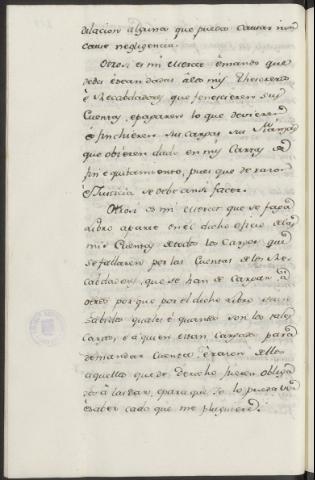 dilacion alguna que pueda causar nin
cause negligencia.
Otrosi es mi merced é mando que
dedes é sean dadas á los mis Thesoreros
é Recabdadores que fenescieren sus
Cuentas, é pagaren lo que devieren
é finchieren sus cargos sus
que obieren dado en mis Cartas de
fin é quitamiento, pues que de razon
é Justicia se debe ansi facer.
Otrosi es mi merced que se faga
Libro aparte en el dicho oficio de las
mis Cuentas de todos los Cargos que
se fallaren por las Cuentas de los Re-
cabdadores, que se han de cargar á
otros por que por el dicho Libro sean
sabidos quales é quantos son los tales
cargos, é á quien estan cargados para
demandar Cuenta é razon dellos
aquellos que de derecho fueren obliga-
dos á las dar, é para que Yo lo pueda ver
é saber cada que me pluguiere.